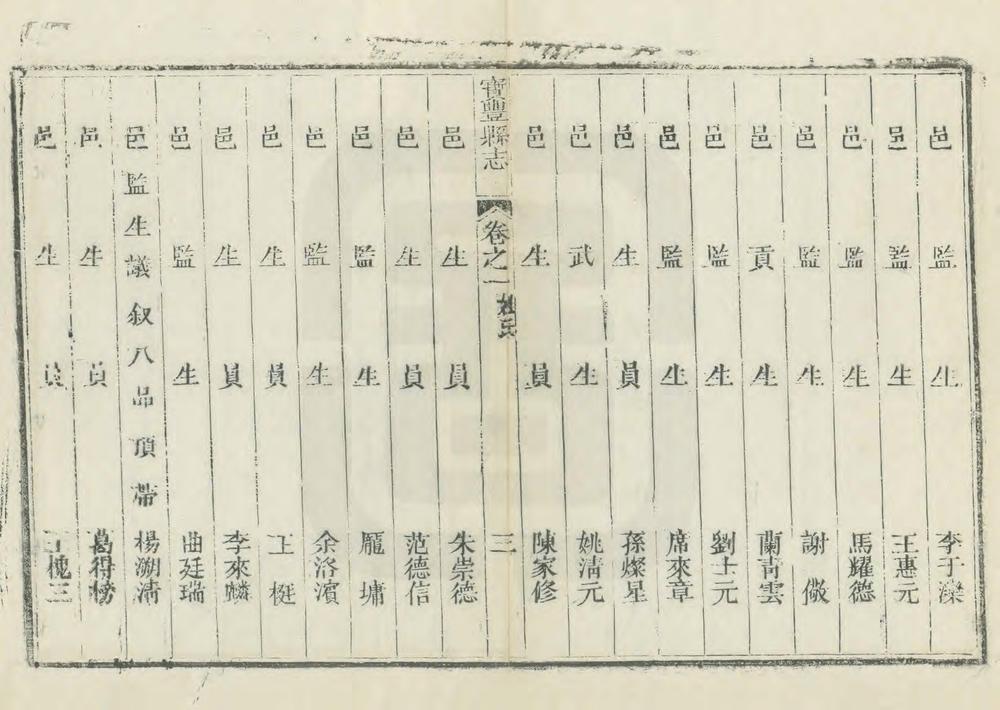 邑監生李于濼
邑監生王惠元
邑監生馬耀德
邑監生謝儆
邑貢生蘭青雲
邑監生劉士元
邑監生席來章
邑生員孫燦星
邑武生姚清元
邑生員陳家修
寶豐縣志 卷之一 姓氏 三
邑生員朱崇德
邑生員范德信
邑監生龐墉
邑監生余洛濱
邑生員王梃
邑生員李來麟
邑監生曲廷瑞
邑監生議叙八品頂帶楊溯清
邑生員葛得榜
邑生員王槐三